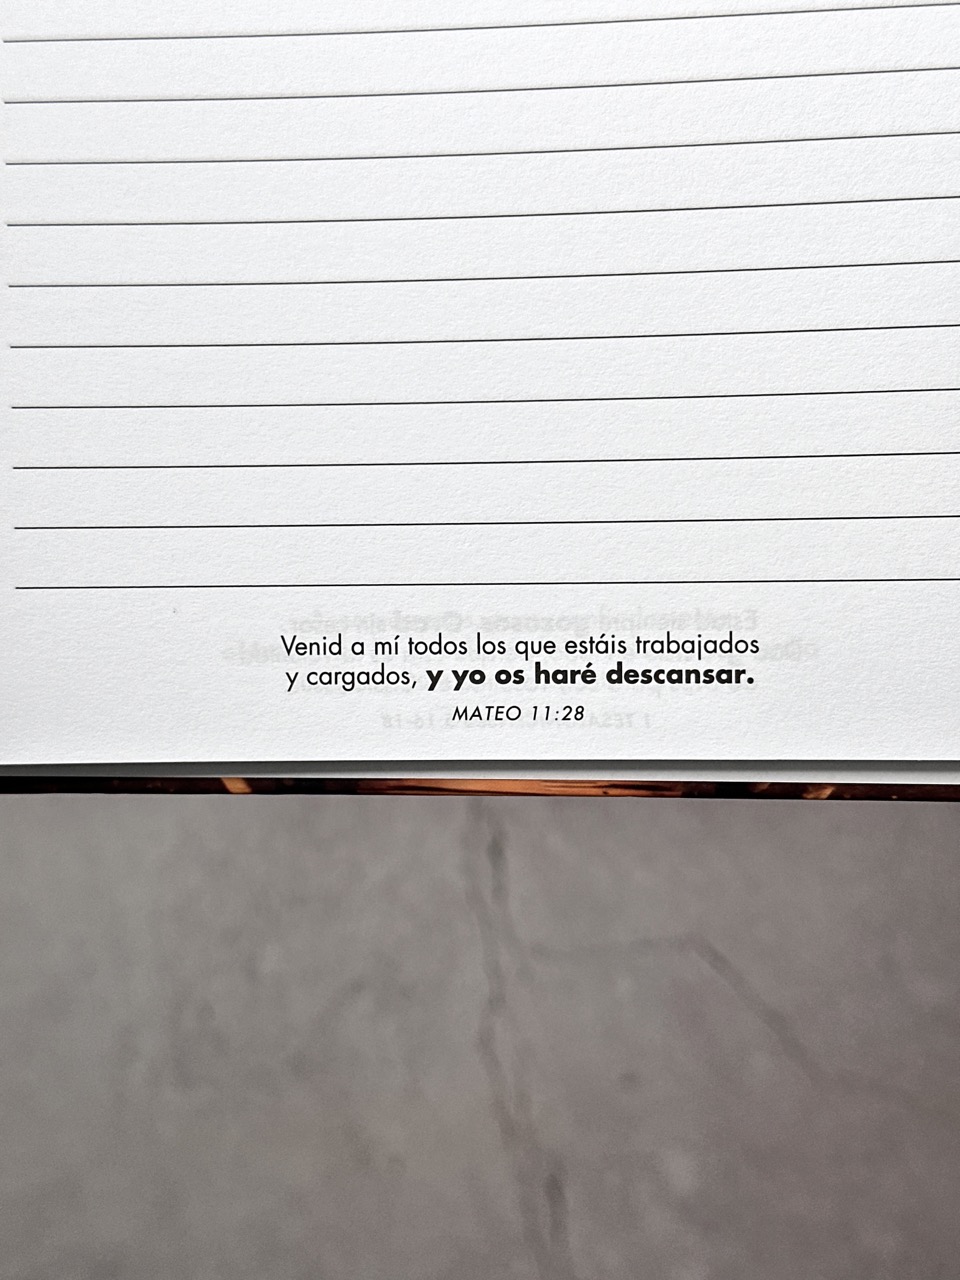 Venid a mí todos los que estáis trabajados
y cargados, y yo os haré descansar.
MATEO 11:28